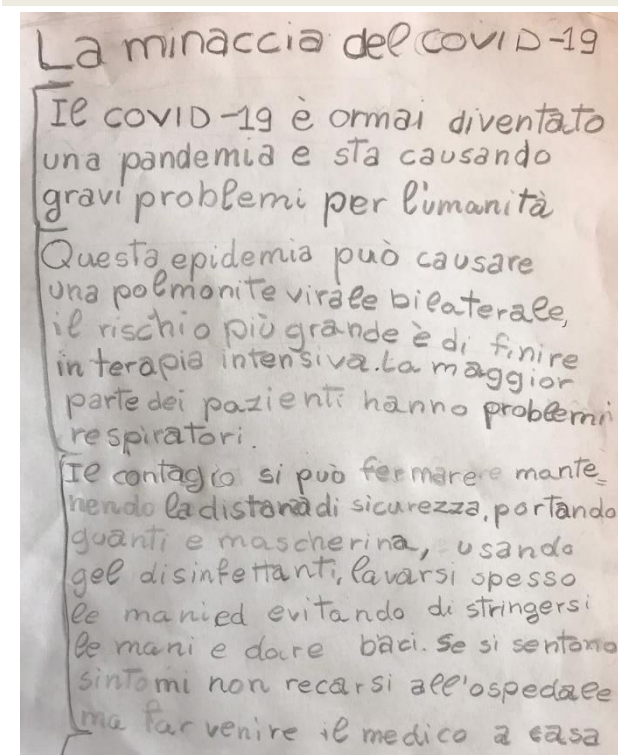 La minaccia del COVID-19
Il COVID-19 è ormai diventato
una pandemia e sta causando
gravi problemi per l'umanità
Questa epidemia può causare
una polmonite virale bilaterale,
il rischio più grande è di finire
in terapia intensiva. La maggior
parte dei pazienti hanno problemi
respiratori.
Il contagio si può fermare mante=
nendo la distanza di sicurezza, portando
guanti e mascherina, usando
gel disinfettanti, lavarsi spesso
le mani ed evitando di stringersi
le mani e dare baci. Se si sentono
sintomi non recarsi all'ospedale
ma far venire il medico a casa